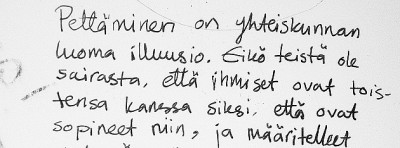 Pettäminen on yhteiskunnan
luoma illuusio. Eikö teistä ole
sairasta, että ihmiset ovat tois-
tensa kanssa siksi, että ovat
sopineet niin, ja määritelleet